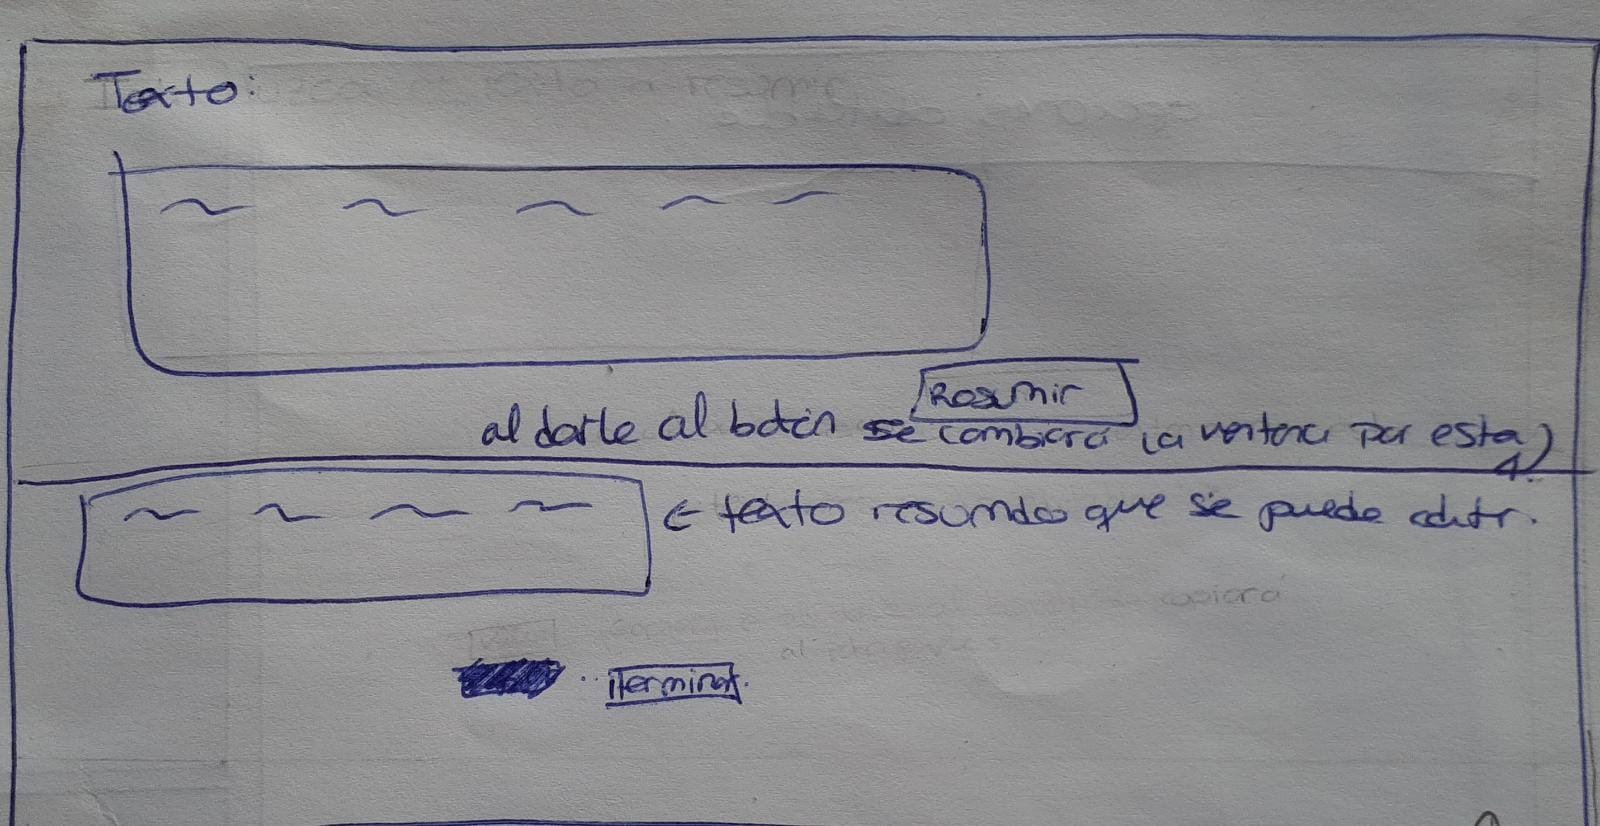 Texto:
Resumir
al darle al botón se cambiará la ventana por esta)
← texto resumido que se puede editr.
Terminar.